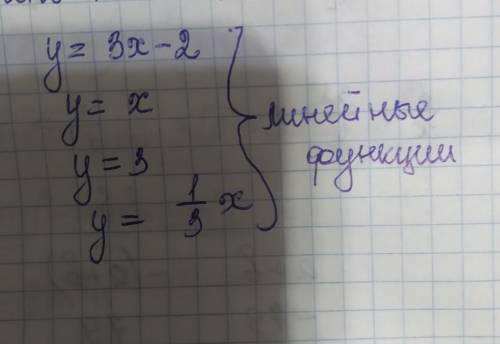 y = 3x - 2
y = x
y = 3
y = 1/3 x
линейные
функции